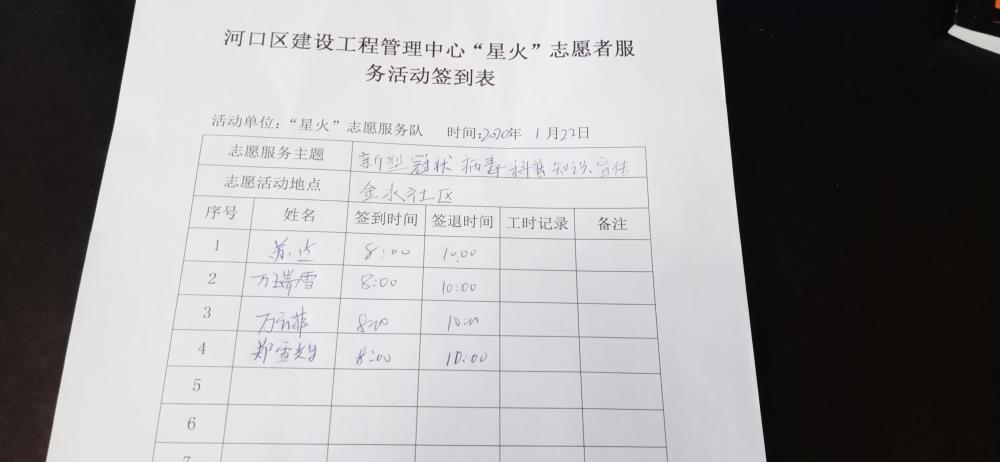 河口区建设工程管理中心“星火”志愿者服
务活动签到表
活动单位：“星火”志愿服务队 时间：2020年 1月22日
志愿服务主题 新型冠状病毒科普知识宣传
志愿活动地点 金水社区
序号 姓名 签到时间 签退时间 工时记录 备注
1 8:00 10:00
2 万瑞雪 8:00 10:00
3 8:00 10:00
4 8:00 10:00
5
6
7